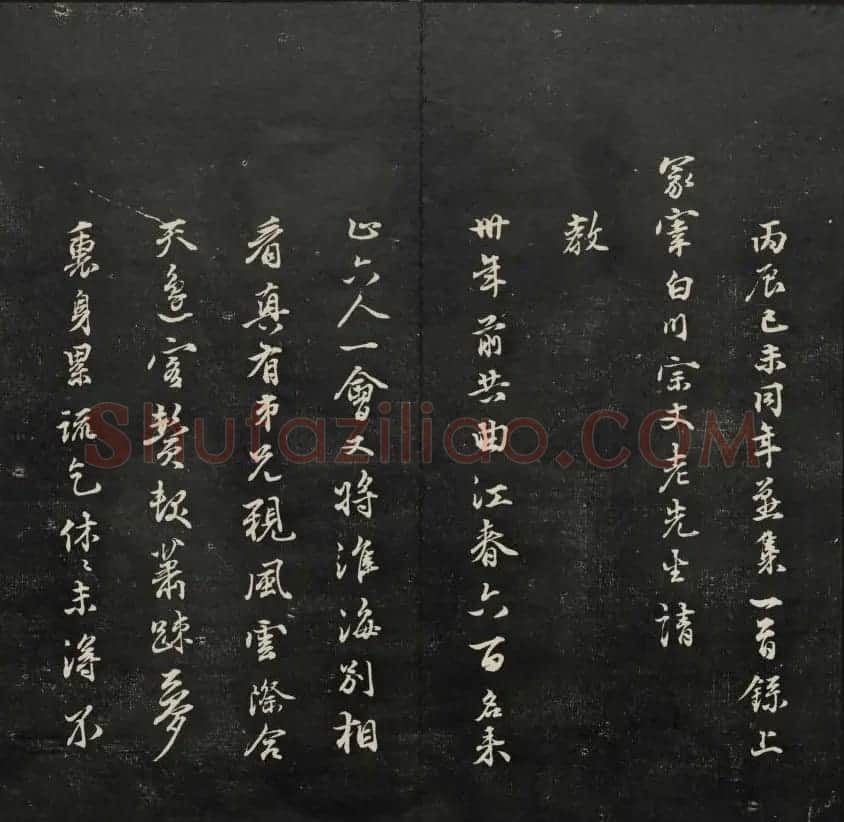 丙辰己未同年並集一首錄上
冢宰白川宗丈老先生請
教
卅年前共曲江春六百名来
止六人一會又将淮海别相
看真有弟兄親風雲際合
天邊客鬢髮蕭踈夢
裏身累疏乞休〻未得不
Shufaziliao.COM